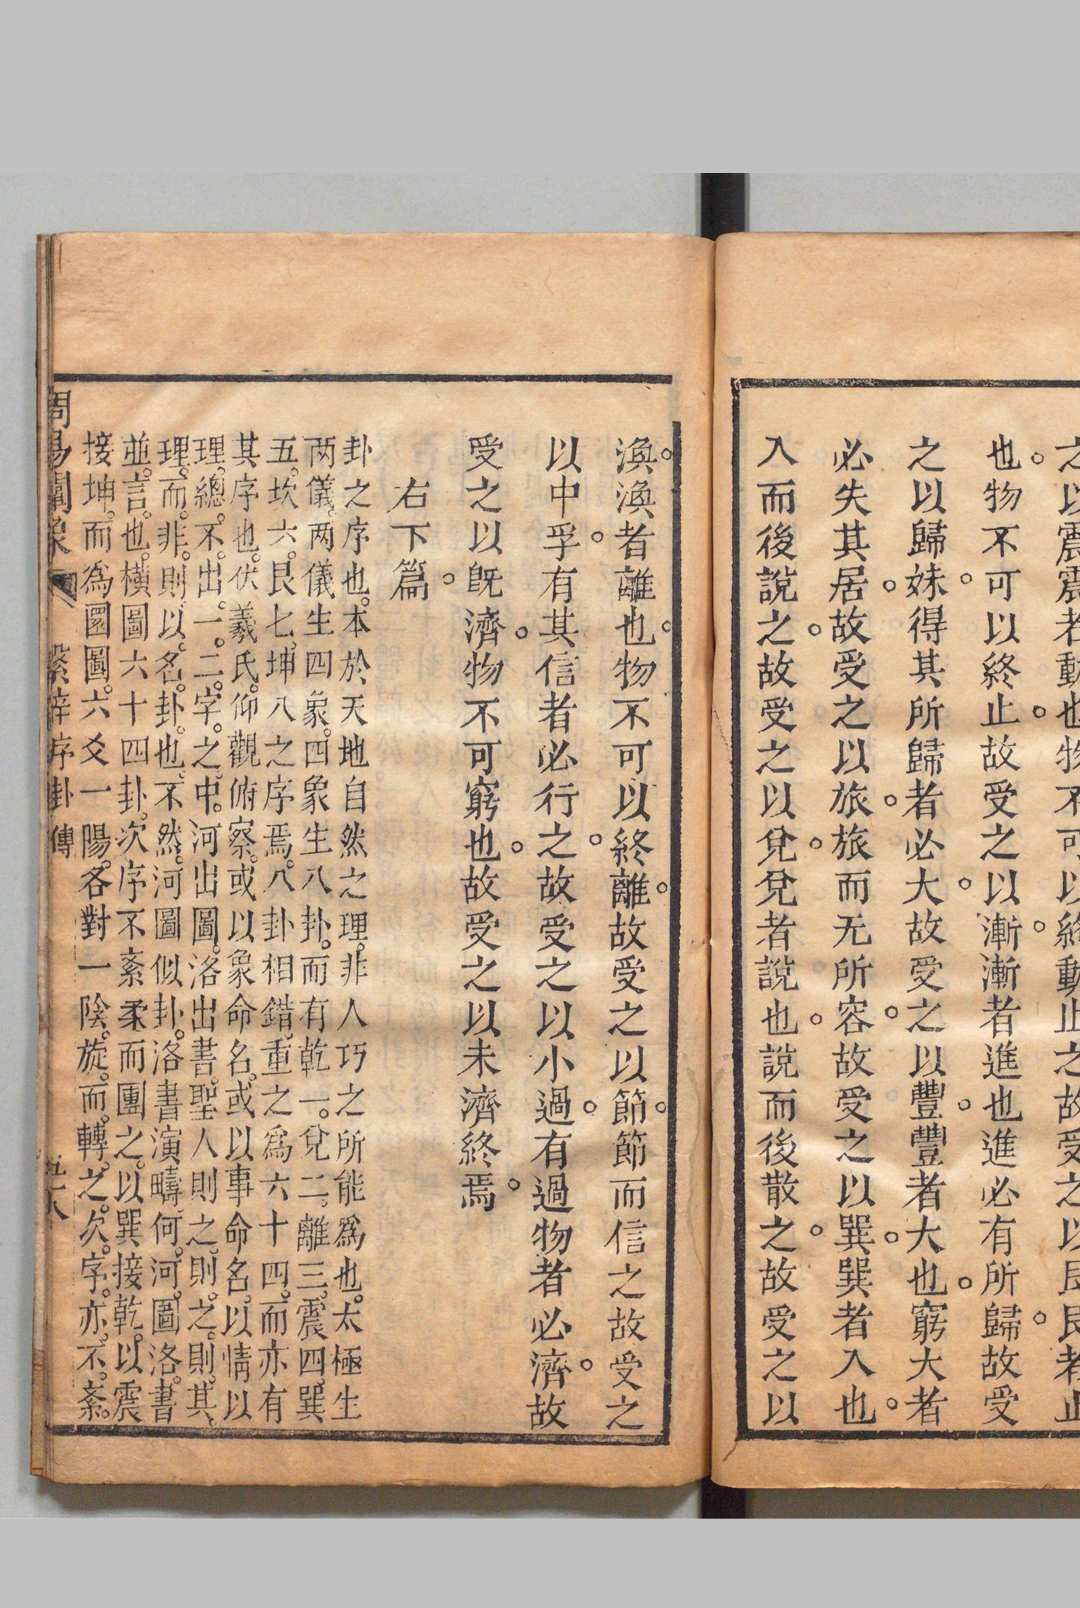 之以震震者動也物不可以終動止之故受之以艮艮者止
也物不可以終止故受之以漸漸者進也進必有所歸故受
之以歸妹得其所歸者必大故受之以豐豐者大也窮大者
必失其居故受之以旅旅而无所容故受之以巽巽者入也
入而後說之故受之以兌兌者說也說而後散之故受之以
渙渙者離也物不可以終離故受之以節節而信之故受之
以中孚有其信者必行之故受之以小過有過物者必濟故
受之以旣濟物不可窮也故受之以未濟終焉
右下篇
卦之序也本於天地自然之理非人巧之所能爲也太極生
两儀两儀生四象四象生八卦而有乾一兌二離三震四巽
五坎六艮七坤八之序焉八卦相錯重之爲六十四而亦有
其序也伏羲氏仰觀俯察或以象命名或以事命名以情以
理總不出一二字之中河出圖洛出書聖人則之則之則其
理而非則以名卦也不然河圖似卦洛書演疇何河圖洛書
並言也橫圖六十四卦次序不紊柔而團之以巽接乾以震
接坤而爲圜圖六爻一陽各對一陰旋而轉之次字亦不紊
周易闡象 繫辭序卦傳 五十八